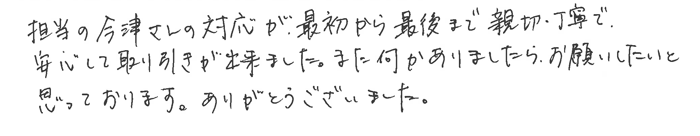 担当の今津さんの対応が、最初から最後まで親切・丁寧で、
安心して取り引きが出来ました。また何かありましたら、お願いしたいと
思っております。ありがとうございました。